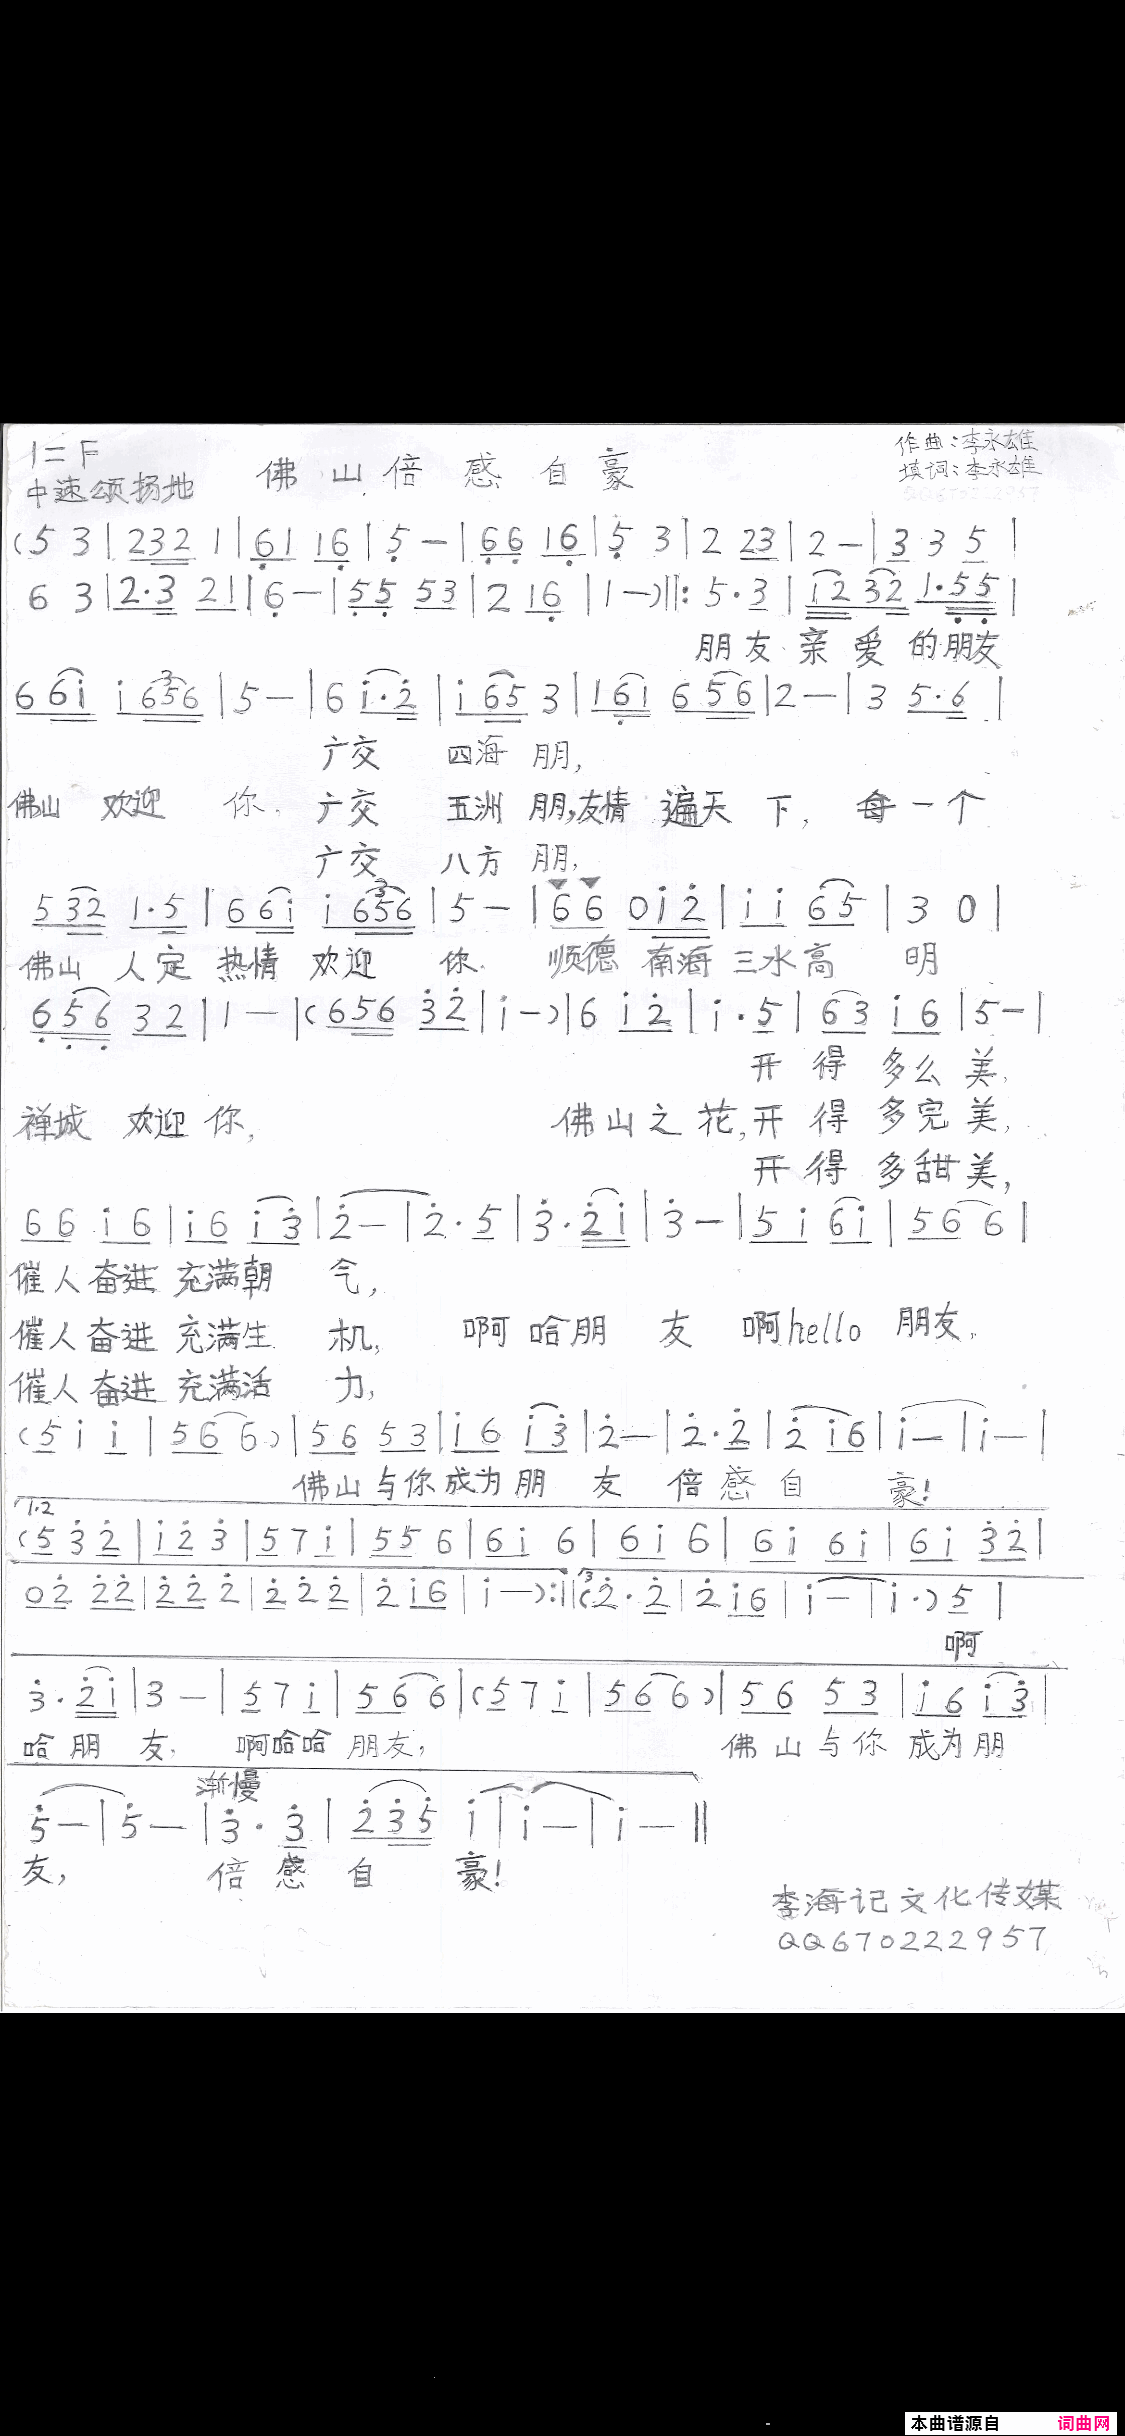 1=F
佛山倍感自豪
作曲:李永雄
中速颂扬地
填词:李永雄
QQ670222957
(5 3 | 232 1 | 61 16 | 5 — | 66 16 | 5 3 | 2 23 | 2 — | 3 3 5 |
6 3 | 2·3 21 | 6 — | 55 53 | 2 16 | 1 —) ‖: 5·3 | i2 32 1·55 |
朋友 亲爱的朋友
6 6i i 656 | 5 — | 6 i·2 | i 65 3 | 161 6 56 | 2 — | 3 5·6 |
广交 四海 朋,
佛山 欢迎 你. 广交 五洲 朋,友情 遍天 下, 每一个
广交 八方 朋,
5 32 1·5 | 6 6i i 656 | 5 — | 66 0i2 | ii 65 | 3 0 |
佛山 人定 热情 欢迎 你. 顺德 南海 三水高 明
656 32 | 1 — | (656 32 | i —) | 6 i2 | i·5 | 63 i6 | 5 — |
开 得 多么 美,
禅城 欢迎 你, 佛山之花,开 得 多完 美,
开 得 多甜 美,
66 i6 | i6 i3 | 2 — | 2·5 | 3·2i | 3 — | 5 i 6i | 56 6 |
催人奋进 充满朝 气,
催人奋进 充满生 机, 啊哈朋 友 啊hello 朋友,
催人奋进 充满活 力,
(5 i i | 56 6) | 56 53 | i6 i3 | 2 — | 2·2 | 2 i6 | i — | i — |
佛山与你成为朋 友 倍感自 豪!
1·2
(5 3 2 | i2 3 | 57 i | 55 6 | 6i 6 | 6i 6 | 6i 6i | 6i 32 |
02 22 | 22 2 | 22 2 | 2 i6 | i —) :‖ 3 (2·2 | 2 i6 | i — | i·) 5 |
啊
3·2i | 3 — | 57 i | 56 6 | (57 i | 56 6) | 56 53 | i6 i3 |
哈朋 友, 啊哈哈 朋友, 佛山与你 成为朋
渐慢
5 — | 5 — | 3·3 | 235 i | i — | i — ‖
友, 倍感 自 豪!
李海记文化传媒
QQ670222957
本曲谱源自 词曲网